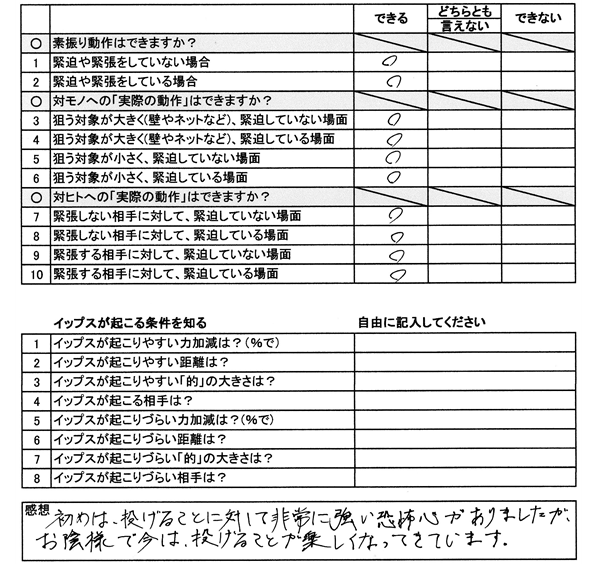 できる どちらとも言えない できない
〇 素振り動作はできますか？
1 緊迫や緊張をしていない場合 〇
2 緊迫や緊張をしている場合 〇
〇 対モノへの「実際の動作」はできますか？
3 狙う対象が大きく(壁やネットなど)、緊迫していない場面 〇
4 狙う対象が大きく(壁やネットなど)、緊迫している場面 〇
5 狙う対象が小さく、緊迫していない場面 〇
6 狙う対象が小さく、緊迫している場面 〇
〇 対ヒトへの「実際の動作」はできますか？
7 緊張しない相手に対して、緊迫していない場面 〇
8 緊張しない相手に対して、緊迫している場面 〇
9 緊張する相手に対して、緊迫していない場面 〇
10 緊張する相手に対して、緊迫している場面 〇
イップスが起こる条件を知る 自由に記入してください
1 イップスが起こりやすい力加減は？(％で)
2 イップスが起こりやすい距離は？
3 イップスが起こりやすい「的」の大きさは？
4 イップスが起こる相手は？
5 イップスが起こりづらい力加減は？(％で)
6 イップスが起こりづらい距離は？
7 イップスが起こりづらい「的」の大きさは？
8 イップスが起こりづらい相手は？
感想
初めは、投げることに対して非常に強い恐怖心がありましたが、
お陰様で今は、投げることが楽しくなってきています。